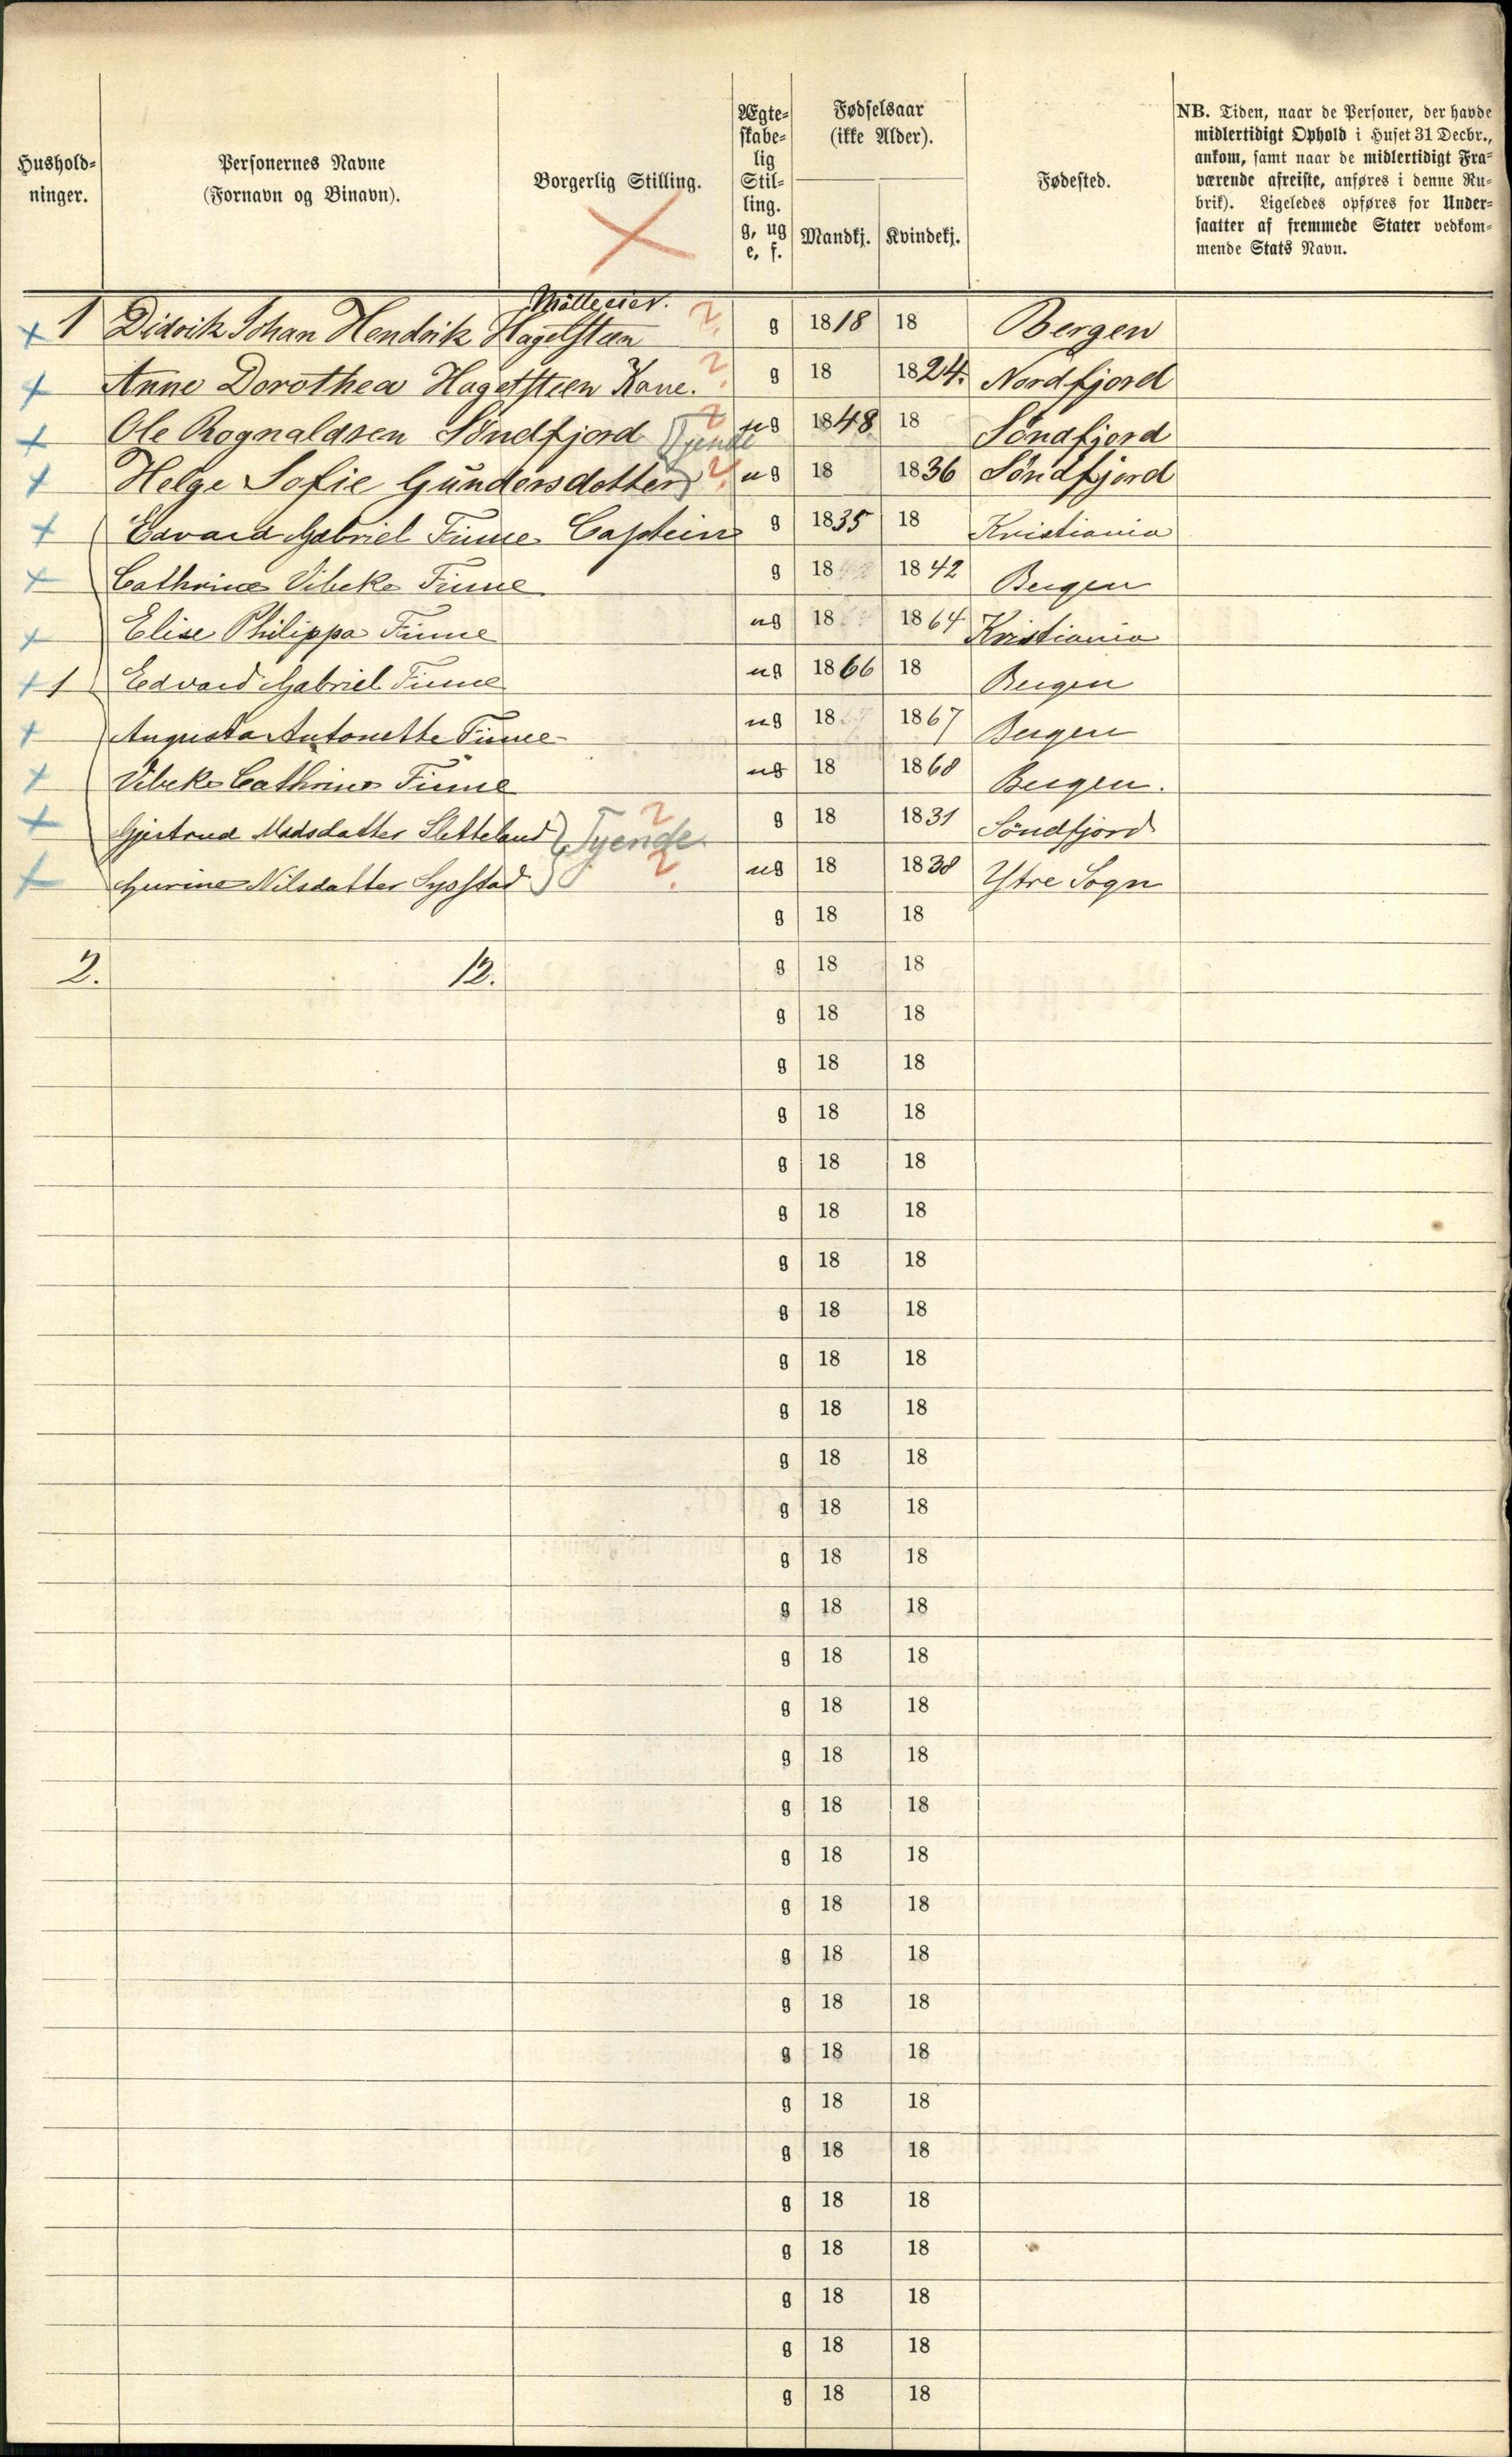 Hushold-
ninger.
Personernes Navne
(Fornavn og Binavn).
Borgerlig Stilling.
Ægte-
skabe-
lig
Stil-
ling.
g, ug
e, f.
Fødselsaar
(ikke Alder).
Mandkj. Kvindekj.
Fødested.
NB. Tiden, naar de Personer, der havde
midlertidigt Ophold i Huset 31 Decbr.,
ankom, samt naar de midlertidigt Fra-
værende afreiste, anføres i denne Ru-
brik). Ligeledes opføres for Under-
saatter af fremmede Stater vedkom-
mende Stats Navn.
Mølleeier.
1 Didrik Johan Hendrik Hagelsteen 2. g 1818 18 Bergen
Anne Dorothea Hagelsteen Kone. 2. g 18 1824. Nordfjord
Ole Rognaldsen Söndfjord Tyende 2 ug 1848 18 Söndfjord
Helge Sofie Gundersdotter 2. ug 18 1836 Söndfjord
Edvard Gabriel Finne Captein g 1835 18 Kristiania
Cathrine Vibeke Finne g 18 1842 Bergen
Elise Philippa Finne ug 18 1864 Kristiania
1 Edvard Gabriel Finne ug 1866 18 Bergen
Augusta Antonette Finne ug 18 1867 Bergen
Vibeke Cathrine Finne ug 18 1868 Bergen.
Gjertrud Madsdatter Sletteland Tyende 2 g 18 1831 Söndfjord
Gurine Nilsdatter 2. ug 18 1838 Ytre Sogn
g 18 18
2. 12. g 18 18
g 18 18
g 18 18
g 18 18
g 18 18
g 18 18
g 18 18
g 18 18
g 18 18
g 18 18
g 18 18
g 18 18
g 18 18
g 18 18
g 18 18
g 18 18
g 18 18
g 18 18
g 18 18
g 18 18
g 18 18
g 18 18
g 18 18
g 18 18
g 18 18
g 18 18
g 18 18
g 18 18
g 18 18
g 18 18